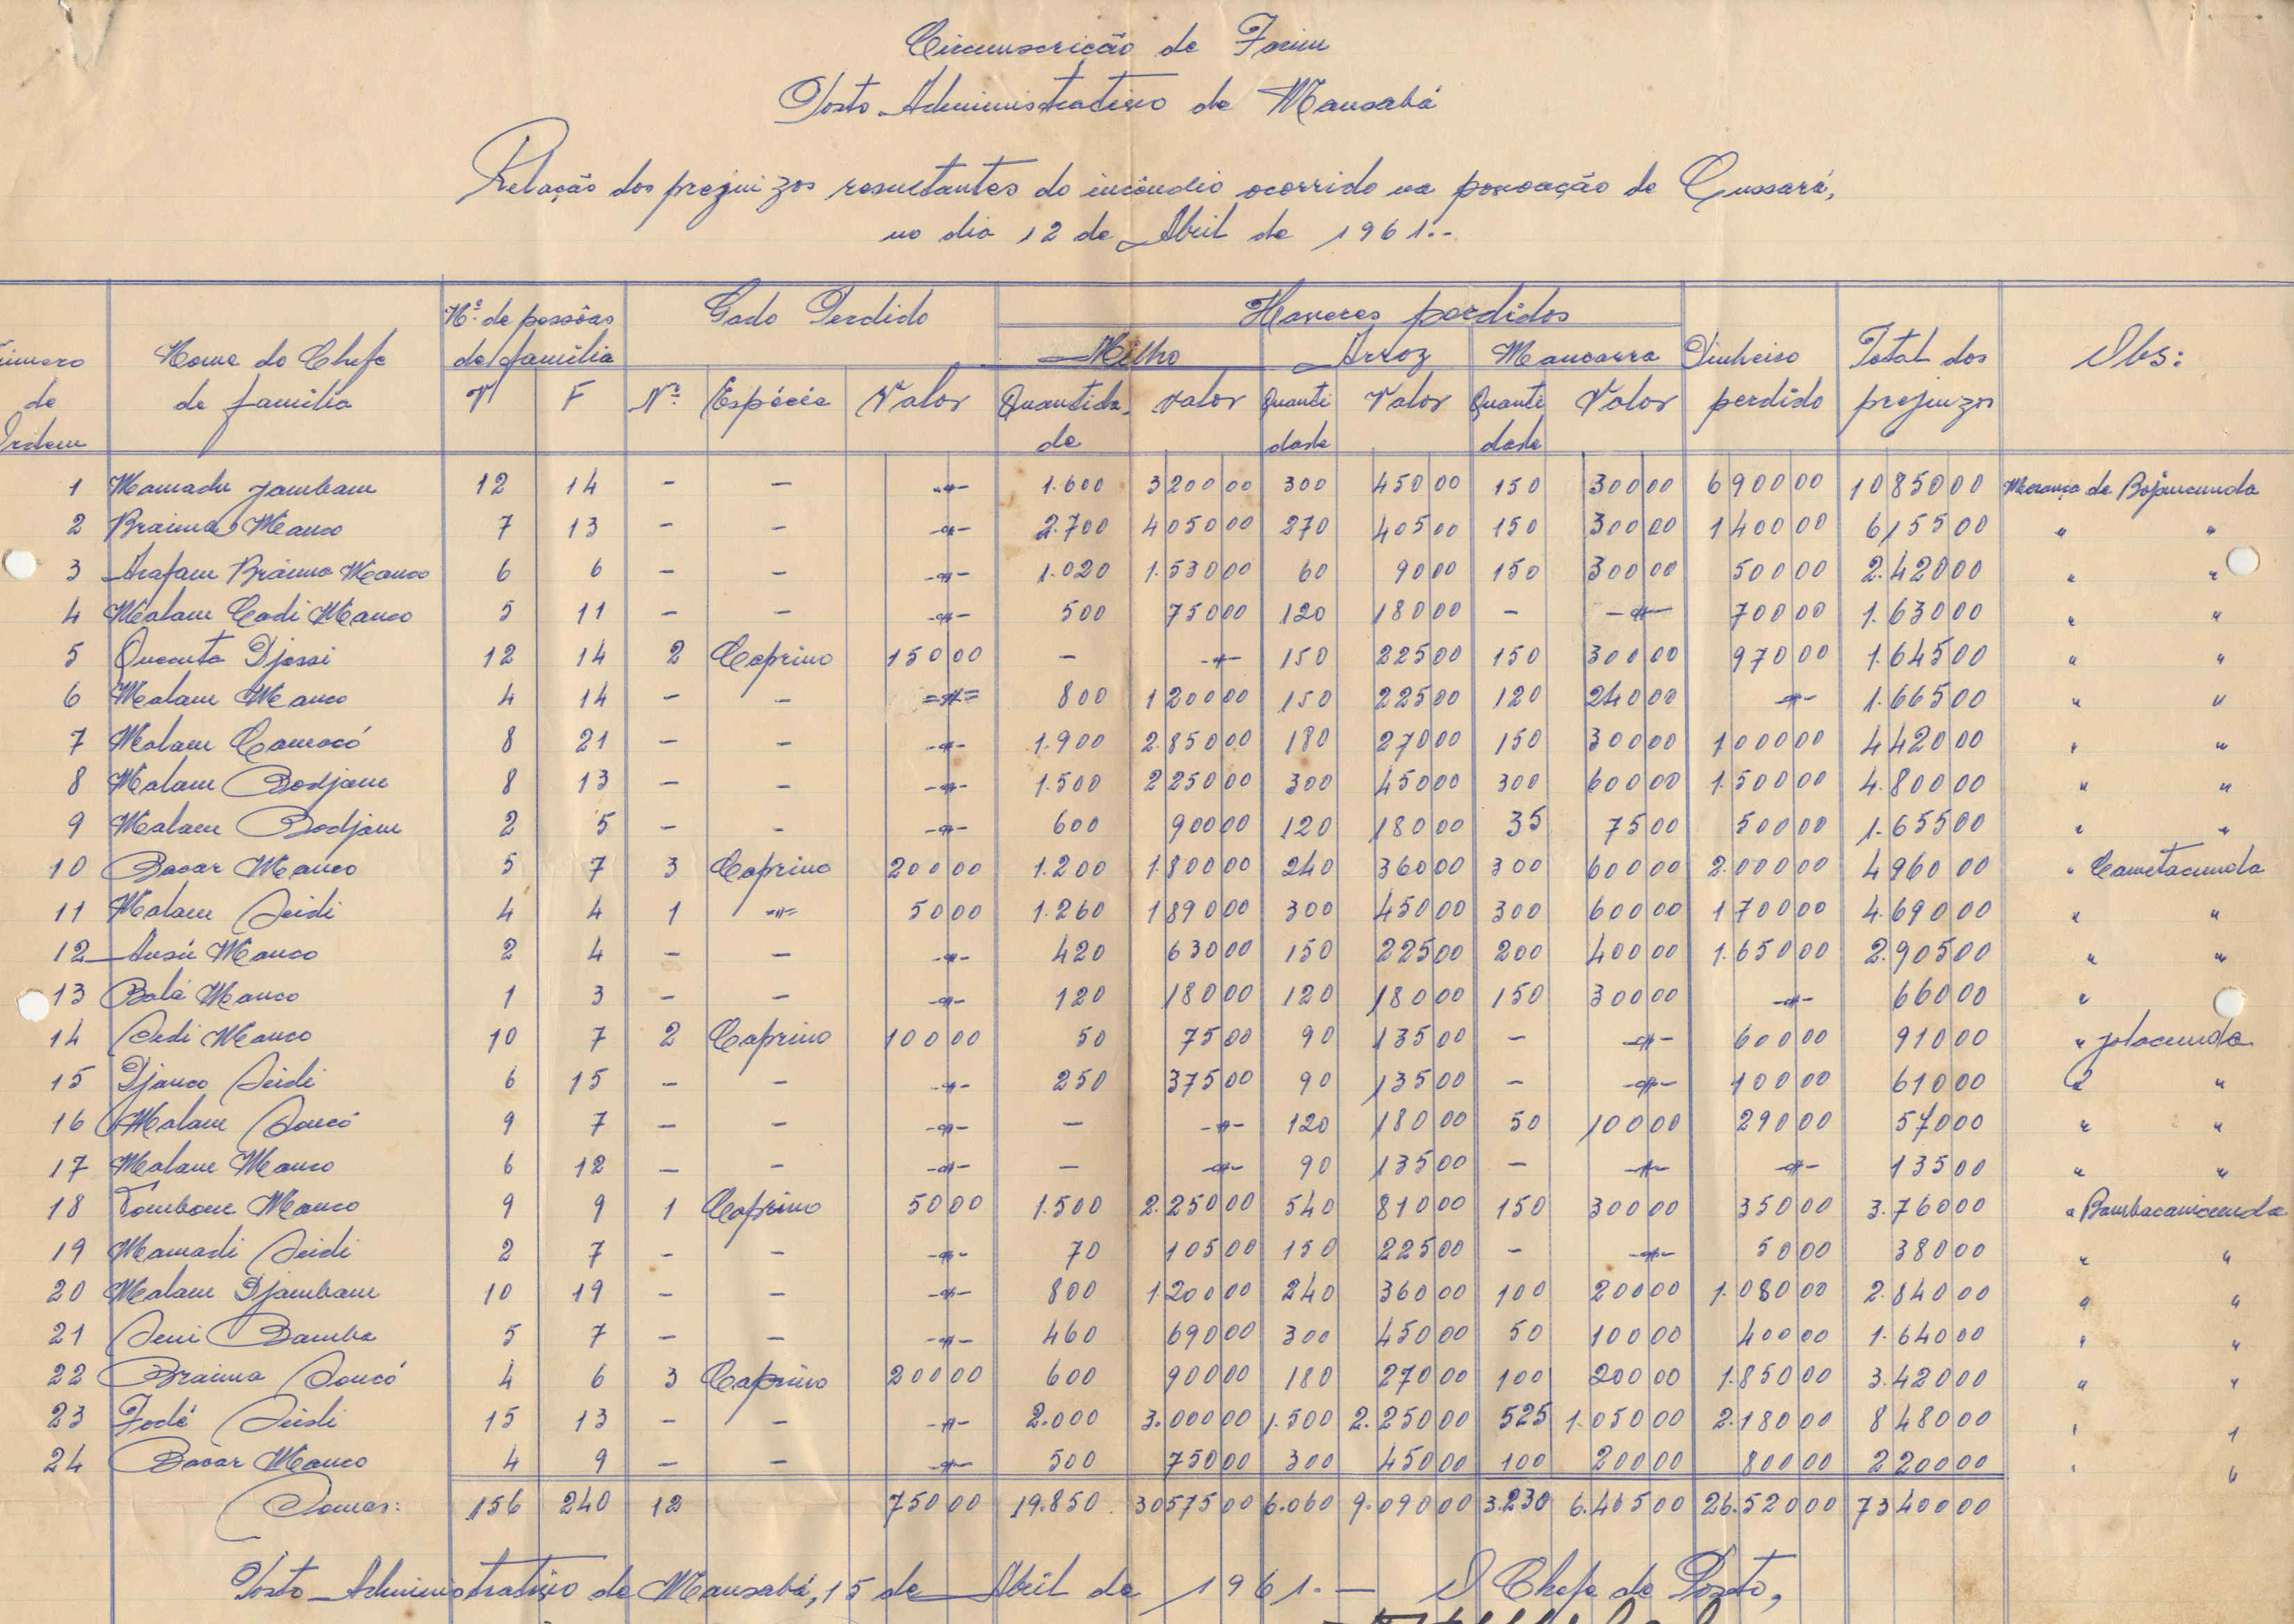 Circunscrição de Farim
Posto Administrativo de Mansabá
Relação dos prejuizos resultantes do incêndio ocorrido na povoação de Cussará,
no dia 12 de Abril de 1961.-
Número de Ordem | Nome do Chefe de família | Nº. de pessôas de família | Gado Perdido | Haveres perdidos | Dinheiro perdido | Total dos prejuizos | Obs:
Milho | Arroz | Mancarra
V | F | Nº. | Espécie | Valor | Quantidade | Valor | Quantidade | Valor | Quantidade | Valor
1 Mamadu Jambam 12 14 - - -"- 1.600 320000 300 45000 150 30000 690000 1085000 Morança de Bojancunda
2 Braima Manco 7 13 - - -"- 2.700 405000 270 40500 150 30000 140000 615500 " "
3 Arafam Braima Manco 6 6 - - -"- 1.020 1.53000 60 9000 150 30000 50000 2.42000 " "
4 Malam Codi Manco 5 11 - - -"- 500 75000 120 18000 - -"- 70000 1.63000 " "
5 Quecuta Djassi 12 14 2 Caprino 15000 - -"- 150 22500 150 30000 97000 1.64500 " "
6 Malam Manco 4 14 - - ="= 800 120000 150 22500 120 24000 -"- 1.66500 " "
7 Malam Camocó 8 21 - - -"- 1.900 2.85000 180 27000 150 30000 100000 442000 " "
8 Malam Bodjam 8 13 - - -"- 1.500 225000 300 45000 300 60000 1.50000 4.80000 " "
9 Malam Bodjam 2 5 - - -"- 600 90000 120 18000 35 7500 50000 1.65500 " "
10 Bacar Manco 5 7 3 Caprino 20000 1.200 1.80000 240 36000 300 60000 2.00000 496000 " Cametacunda
11 Malam Seidi 4 4 1 -"= 5000 1.260 189000 300 45000 300 60000 170000 4.69000 " "
12 Ansú Manco 2 4 - - -"- 420 63000 150 22500 200 40000 1.65000 2.90500 " "
13 Balá Manco 1 3 - - -"- 120 18000 120 18000 150 30000 -"- 66000 "
14 Sedi Manco 10 7 2 Caprino 10000 50 7500 90 13500 - -"- 60000 91000 " Jolacunda
15 Djanco Seidi 6 15 - - -"- 250 37500 90 13500 - -"- 10000 61000 " "
16 Malam Soncó 9 7 - - -"- - -"- 120 18000 50 10000 29000 57000 " "
17 Malam Manco 6 12 - - -"- - -"- 90 13500 - -"- -"- 13500 " "
18 Tombom Manco 9 9 1 Caprino 5000 1.500 2.25000 540 81000 150 30000 35000 3.76000 "
19 Mamadi Seidi 2 7 - - -"- 70 10500 150 22500 - -"- 5000 38000 " "
20 Malam Djambam 10 19 - - -"- 800 1.20000 240 36000 100 20000 1.08000 2.84000 " "
21 Seni Bamba 5 7 - - -"- 460 69000 300 45000 50 10000 40000 1.64000 " "
22 Braima Soncó 4 6 3 Caprino 20000 600 90000 180 27000 100 20000 1.85000 3.42000 " "
23 Fodé Seidi 15 13 - - -"- 2.000 3.00000 1.500 2.25000 525 1.05000 2.18000 848000 " "
24 Bacar Manco 4 9 - - -"- 500 75000 300 45000 100 20000 80000 220000 " "
Somas: 156 240 12 75000 19.850 3057500 6.060 9.09000 3.230 6.46500 26.52000 7340000
Posto Administrativo de Mansabá, 15 de Abril de 1961.- O Chefe de Posto,